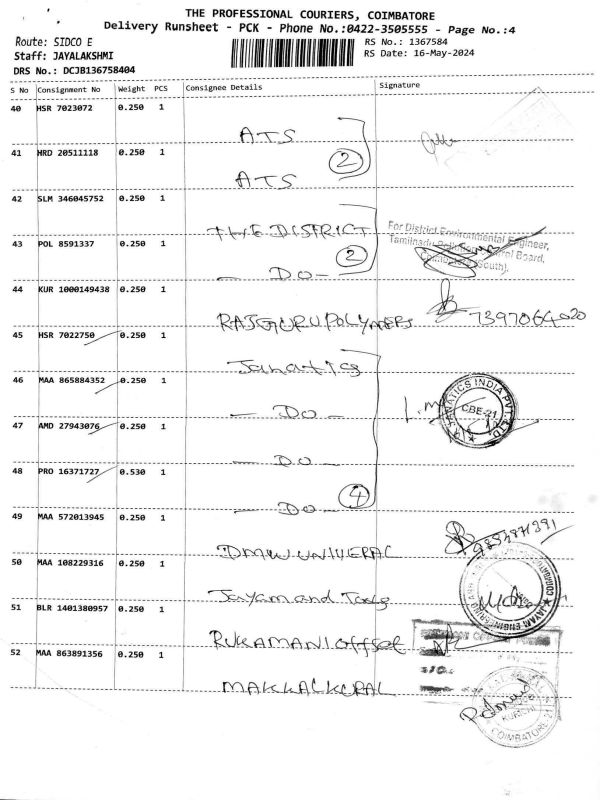 THE PROFESSIONAL COURIERS, COIMBATORE
Delivery Runsheet - PCK - Phone No.:0422-3505555 - Page No.:4
Route: SIDCO E
RS No.: 1367584
Staff: JAYALAKSHMI
RS Date: 16-May-2024
DRS No.: DCJB136758404
S No Consignment No Weight PCS Consignee Details Signature
40 HSR 7023072 0.250 1
ATS
41 HRD 20511118 0.250 1
2
ATS
42 SLM 346045752 0.250 1
THE DISTRICT
For District Environmental Engineer,
Tamilnadu Pollution Control Board,
Coimbatore (South).
43 POL 8591337 0.250 1
2
- DO -
44 KUR 1000149438 0.250 1
RAJGURU POLYMERS
7397064020
45 HSR 7022750 0.250 1
Janatics
46 MAA 865884352 0.250 1
- DO -
JANATICS INDIA PVT. LTD.
CBE-21
47 AMD 27943076 0.250 1
- DO -
48 PRO 16371727 0.530 1
4
- DO -
49 MAA 572013945 0.250 1
DMW UNIVERAL
9894871391
50 MAA 108229316 0.250 1
Jayam and Tools
JAYAM ENGINEERING
COIMBATORE
51 BLR 1401380957 0.250 1
RUKAMANI offset
52 MAA 863891356 0.250 1
MAKKALKURAL
KURICHI
COIMBATORE